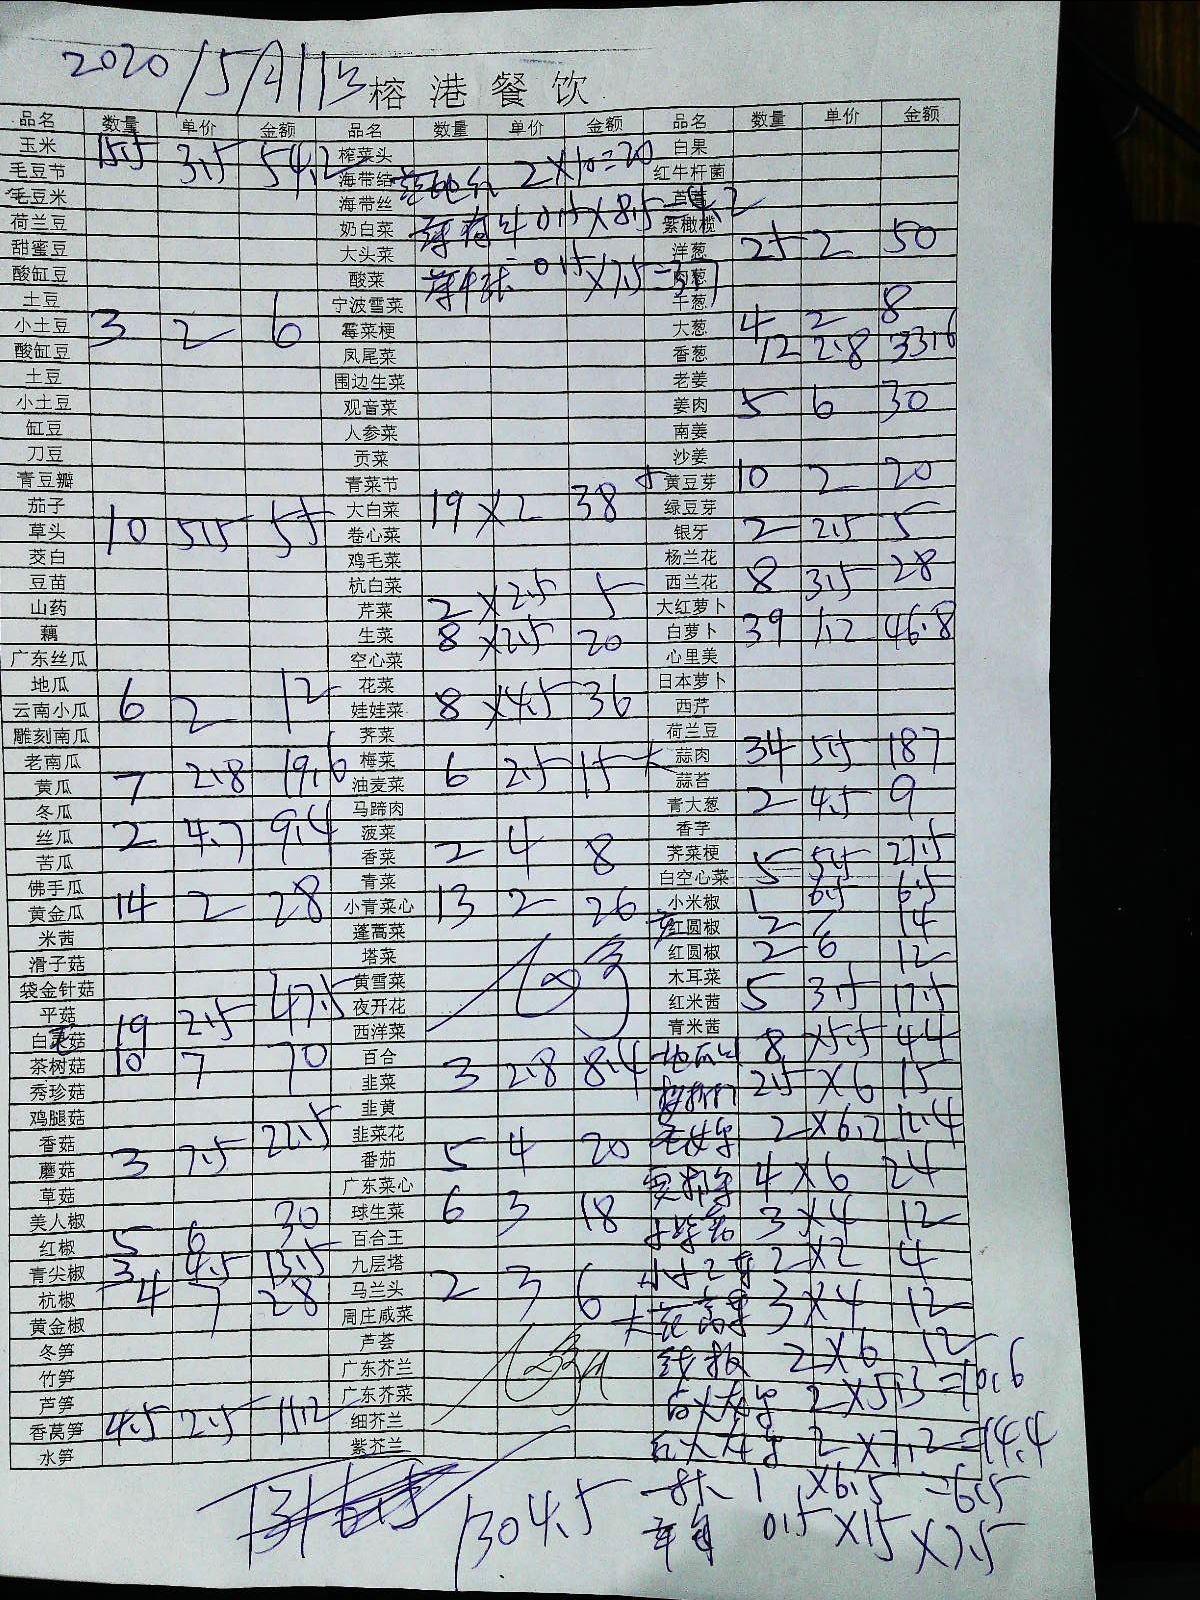 2020/5月13
榕港餐饮
品名 数量 单价 金额 品名 数量 单价 金额 品名 数量 单价 金额
玉米 15.5 3.5 54.2 榨菜头 白果
毛豆节 海带结 2×10=20 红牛杆菌
毛豆米 海带丝
荷兰豆 奶白菜 0.5×8.5=4.2 紫橄榄
甜蜜豆 大头菜 洋葱 25 2 50
酸缸豆 酸菜 0.5×7.5=3.7 肉葱
土豆 宁波雪菜 干葱
小土豆 3 2 6 霉菜梗 大葱 4 2 8
酸缸豆 凤尾菜 香葱 12 2.8 33.6
土豆 围边生菜 老姜
小土豆 观音菜 姜肉 5 6 30
缸豆 人参菜 南姜
刀豆 贡菜 沙姜
青豆瓣 青菜节 黄豆芽 10 2 20
茄子 大白菜 19×2 38 绿豆芽
草头 10 5.5 55 卷心菜 银牙 2 2.5 5
茭白 鸡毛菜 杨兰花
豆苗 杭白菜 西兰花 8 3.5 28
山药 芹菜 2×2.5 5 大红萝卜
藕 生菜 8×2.5 20 白萝卜 39 1.2 46.8
广东丝瓜 空心菜 心里美
地瓜 花菜 日本萝卜
云南小瓜 6 2 12 娃娃菜 8×4.5 36 西芹
雕刻南瓜 荠菜 荷兰豆
老南瓜 梅菜 蒜肉 34 5.5 187
黄瓜 7 2.8 19.6 油麦菜 6 2.5 15 蒜苔
冬瓜 马蹄肉 青大葱 2 4.5 9
丝瓜 2 4.7 9.4 菠菜 香芋
苦瓜 香菜 2 4 8 荠菜梗
佛手瓜 青菜 白空心菜 5 5.5 27.5
黄金瓜 14 2 28 小青菜心 13 2 26 小米椒 1 6.5 6.5
米茜 蓬蒿菜 红圆椒 2 7 14
滑子菇 塔菜 红圆椒 2 6 12
袋金针菇 黄雪菜 木耳菜
平菇 夜开花 红米茜 5 3.5 17.5
白灵菇 19 2.5 47.5 西洋菜 青米茜
茶树菇 10 7 70 百合 8×5.5 44
秀珍菇 韭菜 3 2.8 8.4 2.5×6 15
鸡腿菇 韭黄 2×6.2 12.4
香菇 韭菜花
蘑菇 3 7.5 22.5 番茄 5 4 20 4×6 24
草菇 广东菜心
美人椒 球生菜 6 3 18 3×4 12
红椒 5 6 30 百合王
青尖椒 3 4.5 13.5 九层塔 2×2 4
杭椒 4 7 28 马兰头 2 3 6 3×4 12
黄金椒 周庄咸菜
冬笋 芦荟 2×6 12
竹笋 广东芥兰
芦笋 广东芥菜 2×5.3=10.6
香莴笋 4.5 2.5 11.2 细芥兰
水笋 紫芥兰 2×7.2=14.4
1304.5 1×6.5=6.5
0.5×15×7.5